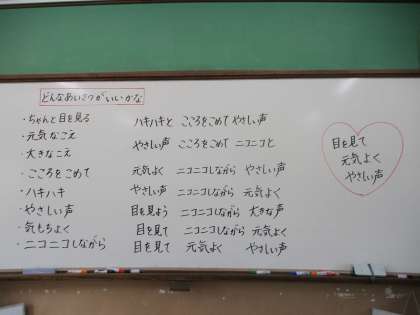 どんなあいさつがいいかな
・ちゃんと目を見る
・元気なこえ
・大きなこえ
・こころをこめて
・ハキハキ
・やさしい声
・気もちよく
・ニコニコしながら
ハキハキと こころをこめて やさしい声
やさしい声 こころをこめて ニコニコと
元気よく ニコニコしながら やさしい声
やさしい声 ニコニコしながら 元気よく
目を見よう ニコニコしながら 大きな声
目を見て ニコニコしながら 元気よく
目を見て 元気よく やさしい声
目を見て
元気よく
やさしい声